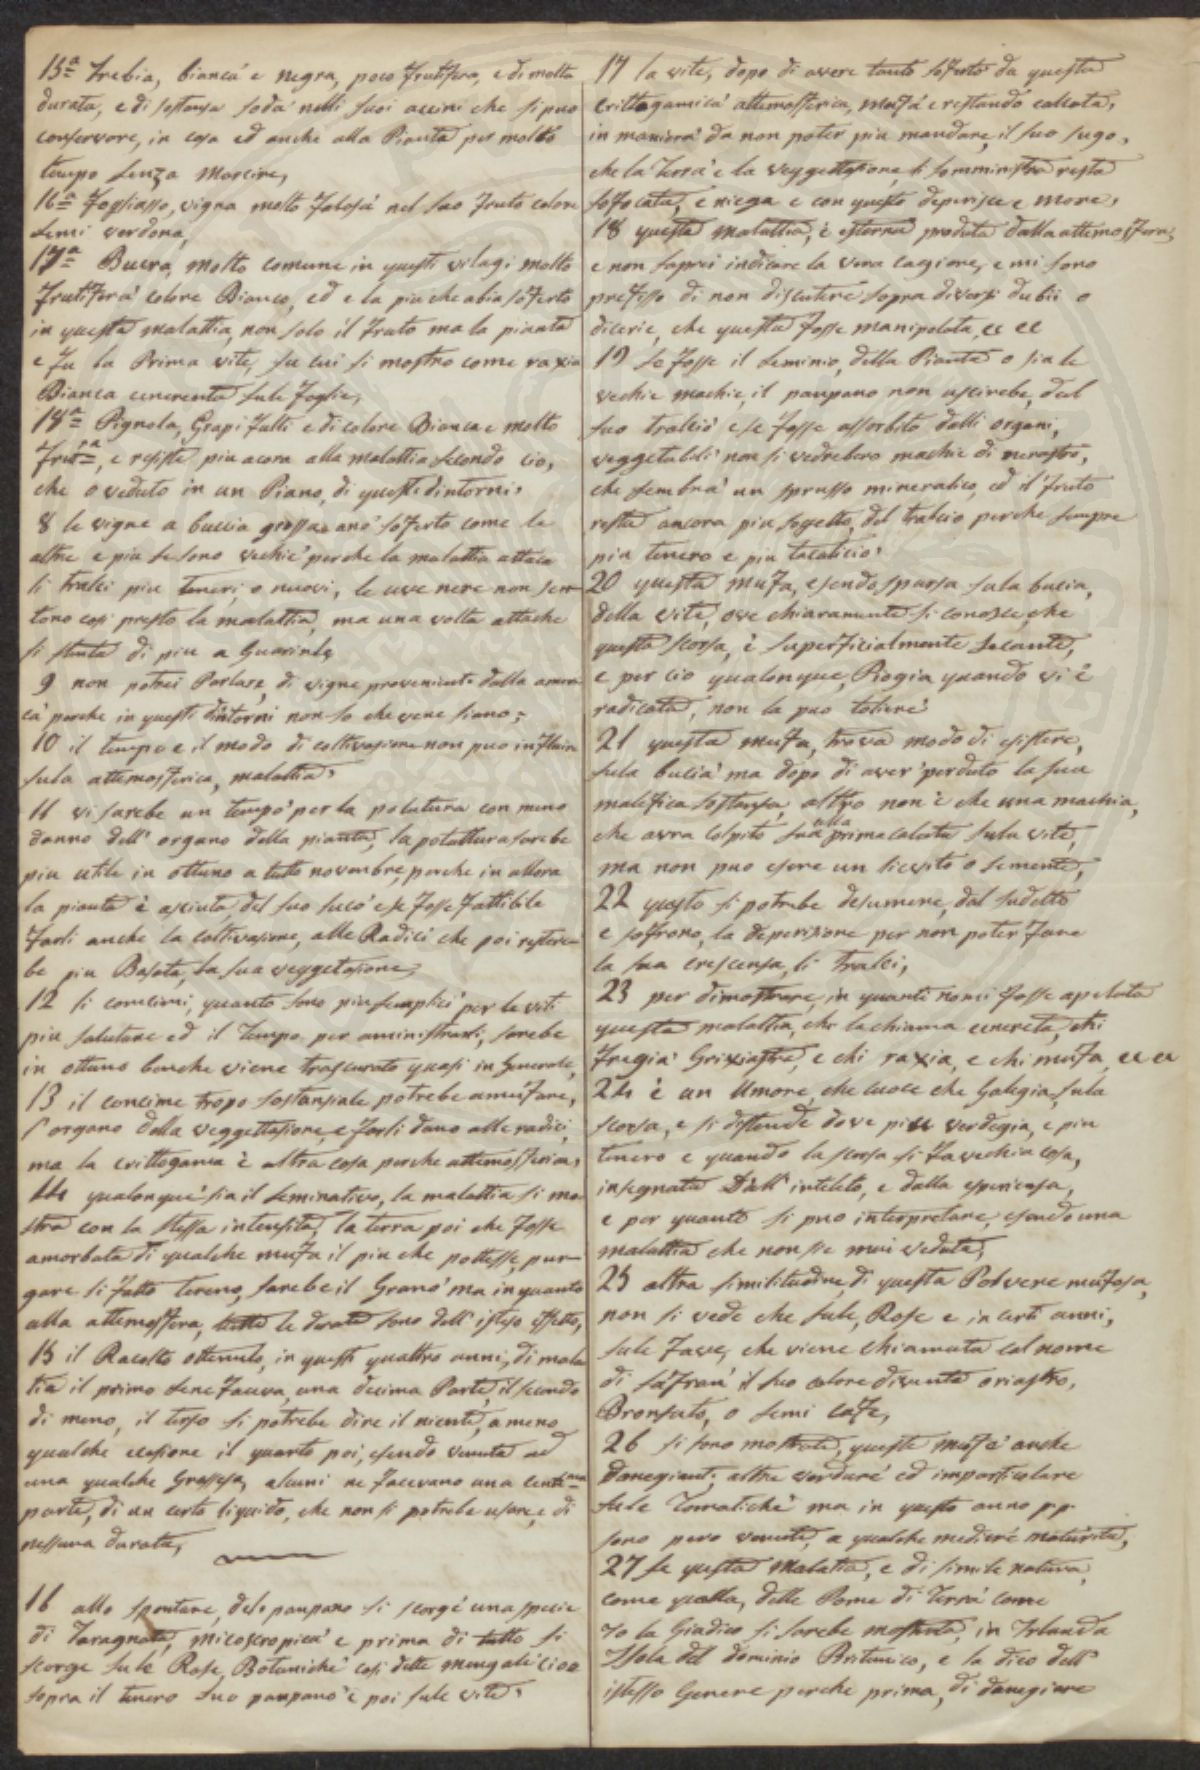 15ª Trebia, bianca e negra, poco frutifera, e di molta
durata, e di sostansa soda nelli suoi accini che si puo
conservare, in casa ed anche alla Pianta per molto
tempo senza marcire,
16ª Fogliasso, vigna molto falosa nel suo fruto colore
semi verdona,
17ª Buera, molto comune in questi vilagi molto
frutifera colore Bianco, ed e la piu che abia soferto
in questa malattia, non solo il fruto ma la pianta
e fu la Prima vite, su cui si mostro come raxia
Bianca cenerenta sule foglie,
18ª Pignola, Grapi fulti e di colore Bianca e molto
Frutra, e resiste piu acora alla malattia secondo cio,
che o veduto in un Piano, di questi dintorni,
8 le vigne a buccia grossa anò soferto come le
altre e piu se sono vechie perche la malattia attaca
li tralci piu teneri, o nuovi, le uve nere non sen=
tono cosi presto la malattia, ma una volta attache
si stenta di piu a Guarirle
9 non potrei Parlare, di vigne proveniente dalla ameri
ca perche in questi dintorni non so che vene siano,
10 il tempo e il modo di coltivasione non puo influire
sula attemosferica, malattia,
11 vi sarebe un tempo per la potatura con meno
danno dell' organo della pianta, la potattura sarebe
piu utile in ottuno a tutto novembre, perche in allora
la pianta è asciuta del suo suco e se fosse fattibile
farli anche la coltivasione, alle Radici che poi restere=
be piu Basata, la sua veggetasione,
12 li concimi, quanto sono piu semplici per le viti
piu salutare ed il Tempo per aministrarli, sarebe
in ottuno benche viene trascurato quasi in Generale,
13 il concime tropo sostansiale potrebe amufare,
l'organo dela veggettasione e farli dano alle radici,
ma la crittogama è altra cosa perche attemosferica,
14 qualonque sia il seminativo, la malattia si mo
stra con la stessa intensità, la terra poi che fosse
amorbata di qualche mufa il piu che pottesse pur=
gare si fatto tereno, sarebe il Grano ma in quanto
alla attemosfera, tutte le derate sono dell' istesso effetto,
15 il Racolto ottenuto, in questi quattro anni, di mala
tia il primo sene faceva, una decima Parte, il secondo
di meno, il terso si potrebe dire il niente, a meno
qualche ecesione il quarto poi, esendo venuta ad
una qualche Grossesa, alcuni ne facevano una centi=ma
parte, di un certo liquido, che non si potrebe usare, e di
nessuna durata,
16 allo spontare, delo panpano si scorge una specie
di Taragnata, micoscropica e prima di tutto si
scorge sule Rose, Botaniche cosi dette mengali cioe
sopra il tenero suo panpano e poi sule vite,
17 la vite, dopo di avere tanto soferto da questa
Crittogamica attemosferica, mufa e restando colcota,
in maniera da non poter piu mandare, il suo sugo,
che la Terra e la veggettasione, li somministra resta
sofocata, e niega e con questo deperisce e more,
18 questa malattia, è esterna produta dalla attemosfera,
e non saprei indicare la vera cagione, e mi sono
prefisso di non discutere sopra diversi dubii o
dicerie, che questa fosse manipolata, ec ec
19 se fosse il seminio, della Pianta o sia le
vechie machie, il panpano non uscirebe, dal
suo tralcio e se fosse assorbito dalli organi,
veggetabili non si vedrebero machie di nerastro,
che sembra un sprusso mineralico, ed il fruto
resta ancora piu sogetto, del tralcio perche sempre
piu tenero e piu tacaticio,
20 questa mufa, esendo sparsa sula bucia,
della vite, ove chiaramente si conosce che
questa scorsa, è superficialmente secante,
e per cio qualonque, Piogia quando vi è
radicata, non la puo toliere
21 questa mufa, trova modo di esistere,
sula bucia ma dopo di aver perduto la sua
malefica sostansa, altro non è che una machia,
che avra colpito sua alla prima calata sula vite,
ma non puo esere un lievito o semente,
22 questo si potrebe desumere, dal sudetto
e sofrono, la deperisione per non poter fare
la sua crescensa, li tralci,
23 per dimostrare, in quanti nomi fosse apelata
questa malattia, chi la chiama cenereta, chi
Fregia Grixiastra, e chi raxia, e chi mufa, ec ec
24 è un Umore, che cuoce che Galegia, sula
scorsa, e si distende dove piu verdegia, e piu
tenero e quando la scorsa si fa vechia cosa,
insegnata Dall' inteleto, e dalla esperiensa,
e per quanto si puo interpretare, esendo una
malattia che non sie mai veduta,
25 altra similitudine, di questa Polvere mufosa,
non si vede che sule, Rose e in certi anni,
sule fave, che viene chiamata col nome
di safran il suo colore diventa oriastro,
Bronsato, o semi cafe,
26 si sono mostrate, queste mufe anche
danegianti, altre verdure ed importicolare
sule Tomatiche ma in questo anno p.p.
sono pero venute, a qualche mediere maturita,
27 se questa malatia, e di simile natura,
come quella, delle Pome di Terra come
Io la Giudico si sarebe mostrata, in Irlanda
Isola del dominio Britanico, e la dico dell'
istesso Genere perche prima, di danegiare